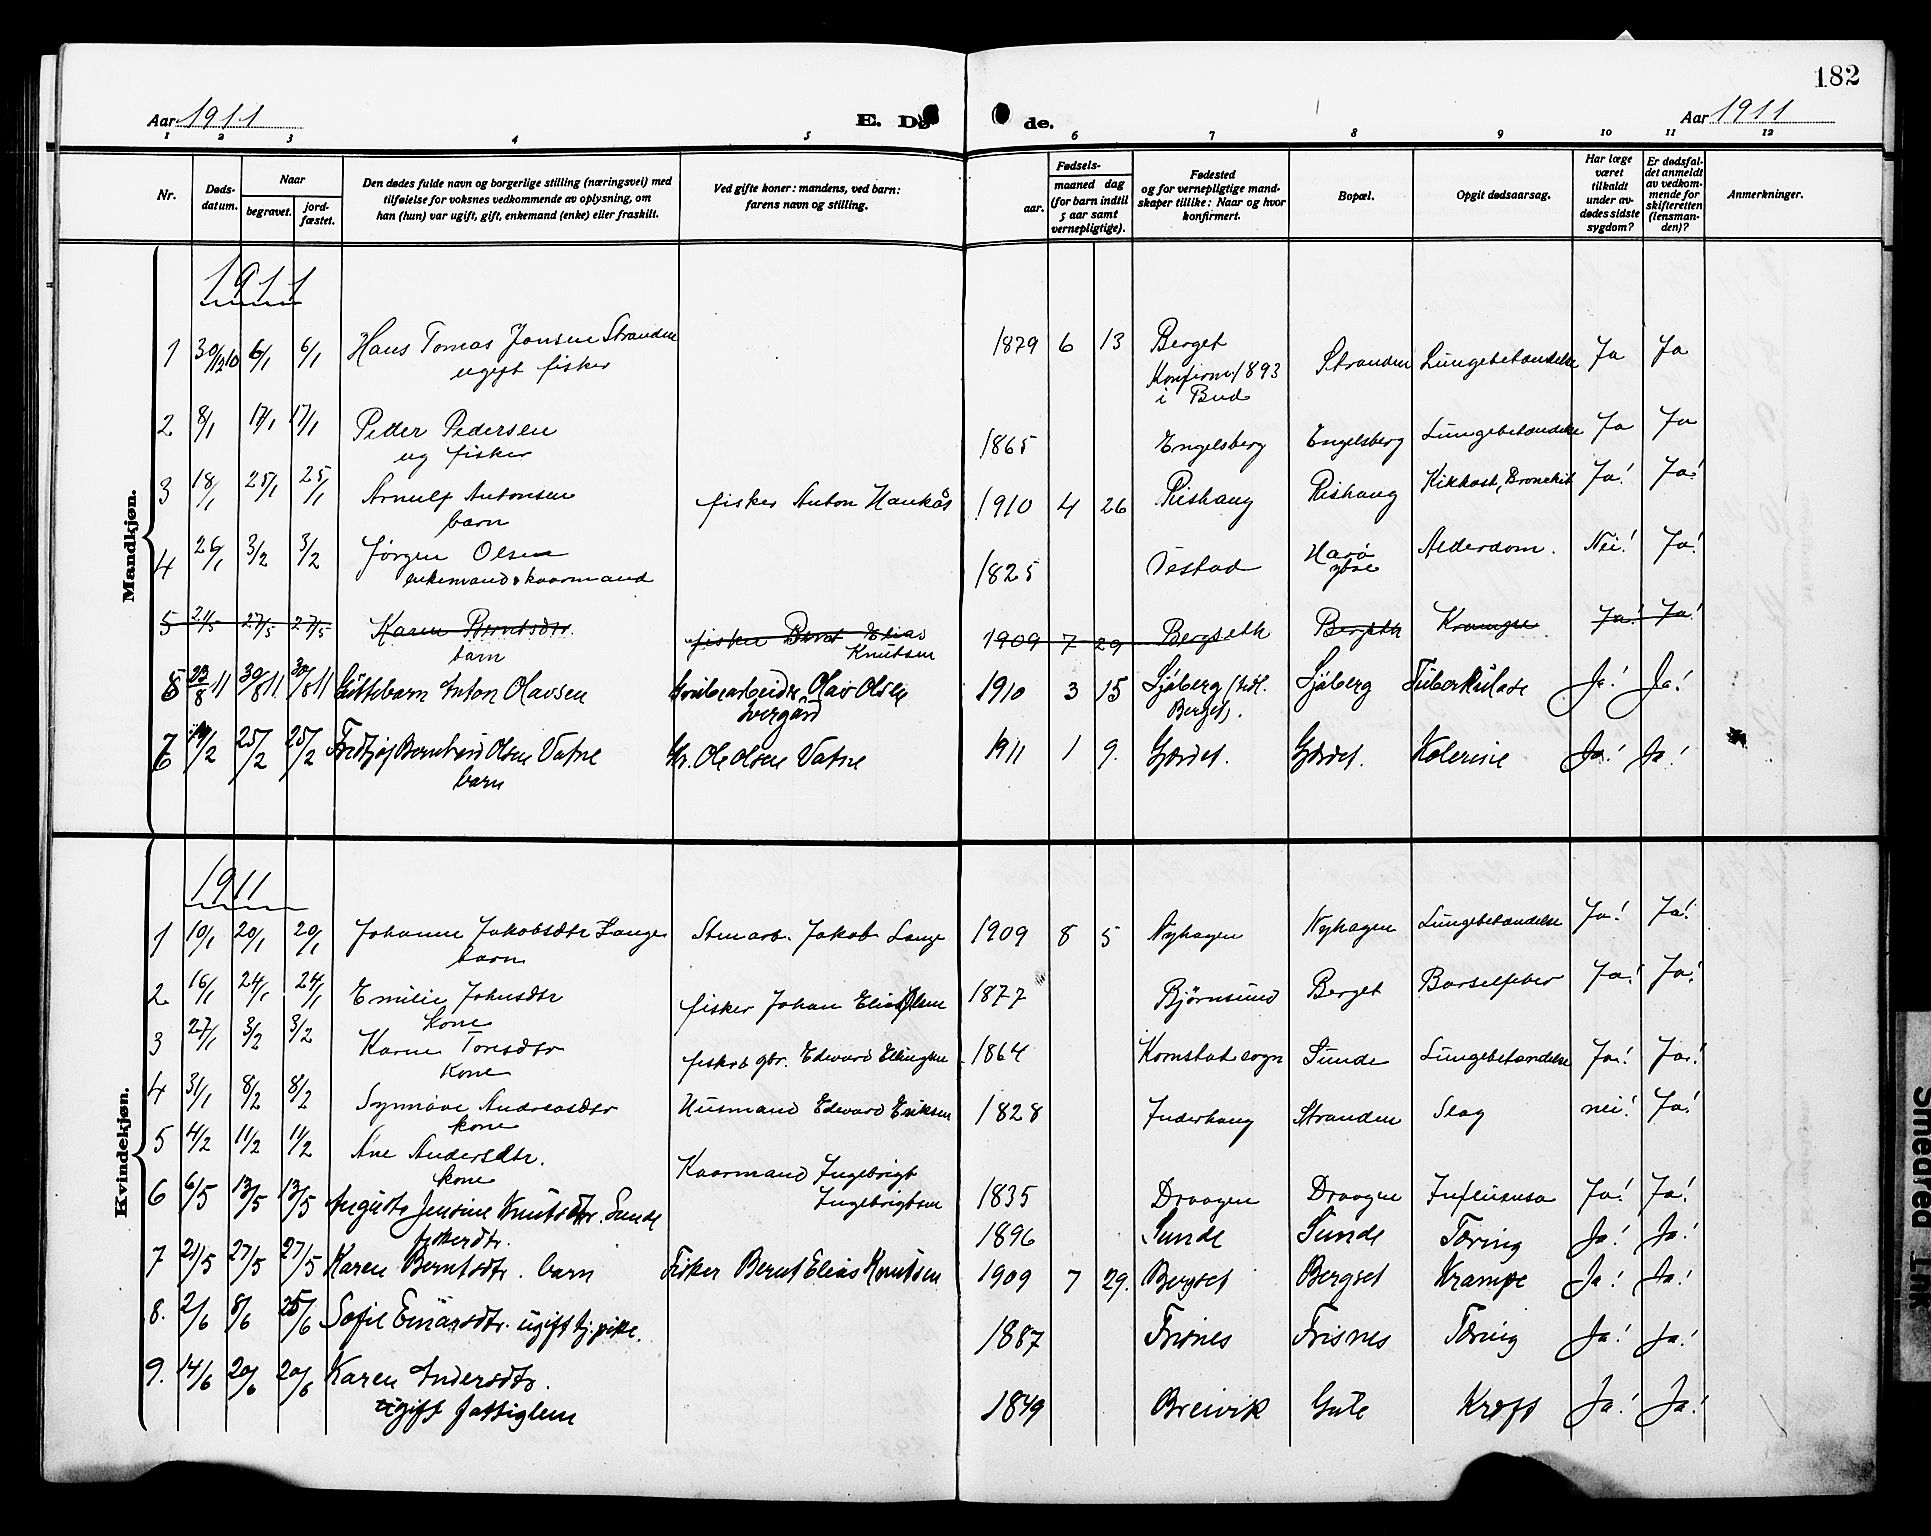 182
Aar 1911
E. Dø de.
Aar 1911
1 2 3 4 5 6 7 8 9 10 11 12
Nr.
Døds-datum.
Naar
begravet.
jord-fæstet.
Den dødes fulde navn og borgerlige stilling (næringsvei) med
tilføielse for voksnes vedkommende av oplysning, om
han (hun) var ugift, gift, enkemand (enke) eller fraskilt.
Ved gifte koner: mandens, ved barn:
farens navn og stilling.
Fødsels-
aar.
maaned dag
(for barn indtil
5 aar samt
vernepligtige).
Fødested
og for vernepligtige mand-
skaper tillike: Naar og hvor
konfirmert.
Bopæl.
Opgit dødsaarsag.
Har læge
været
tilkaldt
under av-
dødes sidste
sygdom?
Er dødsfal-
det anmeldt
av vedkom-
mende for
skifteretten
(lensman-
den)?
Anmerkninger.
Mandkjøn.
1911
1 30/12 10 6/1 6/1 Hans Tomas Jonsen Stranden 1879 6 13 Berget Stranden Lungebetændelse Ja Ja
ugift fisker Konfirm. 1893
i Bud
2 8/1 17/1 17/1 Petter Pedersen 1865 Engelsberg Engelsberg Lungebetændelse Ja Ja
ug fisker
3 18/1 25/1 25/1 Arnulf Antonsen fisker Anton Haukås 1910 4 26 Rishaug Rishaug Kikhost, Bronchit Ja! Ja!
barn
4 26/1 3/2 3/2 Jørgen Olsen 1825 Vestad Harø Alderdom. Nei! Ja!
enkemand & kaarmand
5 21/5 27/5 27/5 Karen Berntsdtr. fisker Bernt Elias 1909 7 29 Bergseth Bergseth Krampe Ja! Ja!
barn Knutsen
6 23/8 11 30/8 11 30/8 11 Gittebarn Anton Olavsen Olav Olsen 1910 3 15 Sjøberg Sjøberg Tuberkulose Ja! Ja!
Berget).
7 6 /2 25/2 25/2 Fridtjof Bernhard Olsen Vatne Gr. Ole Olsen Vatne 1911 1 9. Gjærdet. Gjærdet. Kolerine Ja! Ja!
barn
Kvindekjøn.
1911
1 10/1 20/1 20/1 Johanne Jakobsdtr Lange Stenarb. Jakob Lange 1909 8 5 Nyhagen Nyhagen Lungebetændelse Ja! Ja!
barn
2 16/1 24/1 24/1 Emilie Johnsdtr fisker Johan Elias Olsen 1877 Bjørnsund Berget Barselfeber Ja! Ja!
kone
3 27/1 3/2 3/2 Karen Toresdtr fisker & gbr. Edward Ellingsen 1864 Kornstad sogn Sunde Lungebetændelse Ja! Ja!
kone
4 31/1 8/2 8/2 Synnøve Andreasdtr Husmand Edward Eriksen 1828 Inderhaug Stranden Slag nei! Ja!
kone
5 4/2 11/2 11/2 Ane Andersdtr. Kaarmand Ingebrigt
kone Ingebrigtsen 1835 Draagen Draagen Influensa Ja! Ja!
6 6/5 13/5 13/5 Augusta Jensine Knutsdtr. Sunde 1896 Sunde Sunde Tæring Ja! Ja!
fiskerdtr.
7 21/5 27/5 27/5 Karen Berntsdtr. barn Fisker Bernt Elias Knutsen 1909 7 29. Bergset Bergset Krampe Ja! Ja!
8. 2/6 8/6 25/6 Sofie Einarsdtr. ugift tj. pike. 1887 Frisnes Frisnes Tæring Ja! Ja!
9. 14/6 20/6 20/6 Karen Andersdtr. 1849 Breivik Gule Kræft Ja! Ja!
ugift fattiglem
Smeared Ink